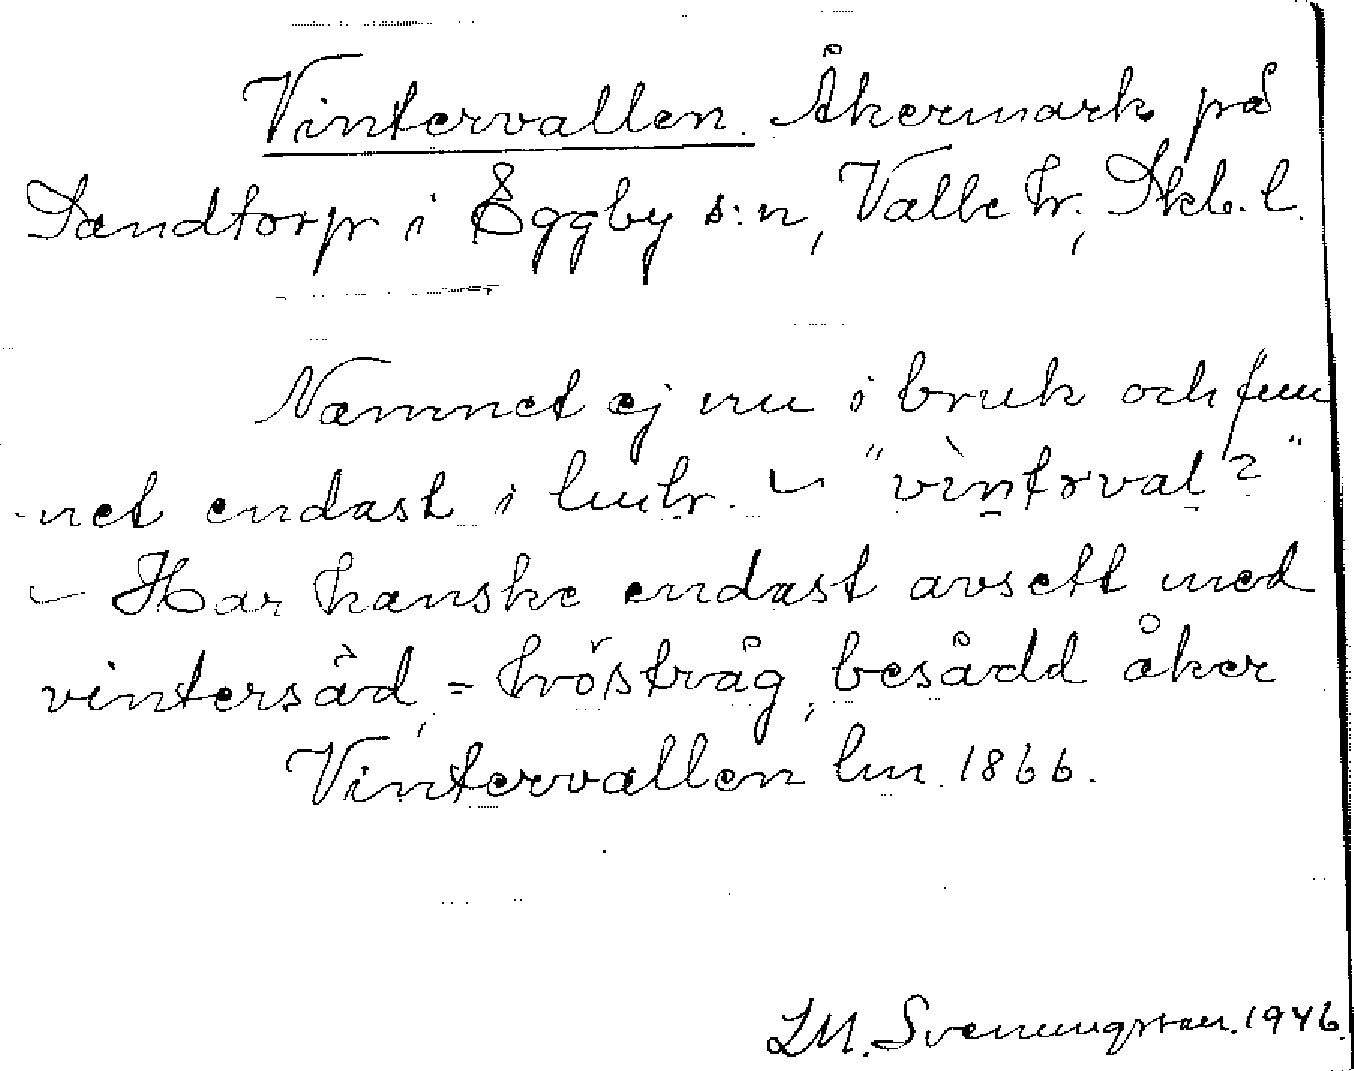 Vintervallen. Åkermark på
Sandtorp i Eggby s:n, Valle hr, Skb. l.
Namnet ej nu i bruk och fun
net endast i lmhr. – "vìntrval?"
– Har kanske endast avsett med
vintersäd, = höströg, besådd åker
Vintervallen lm 1866.
LM. Svenungsson. 1946.